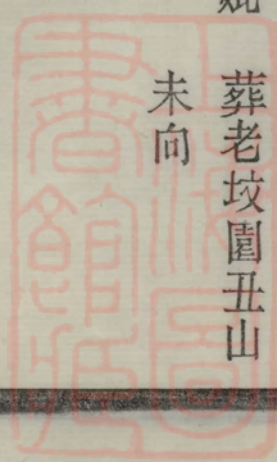 葬老坟園丑山
未向